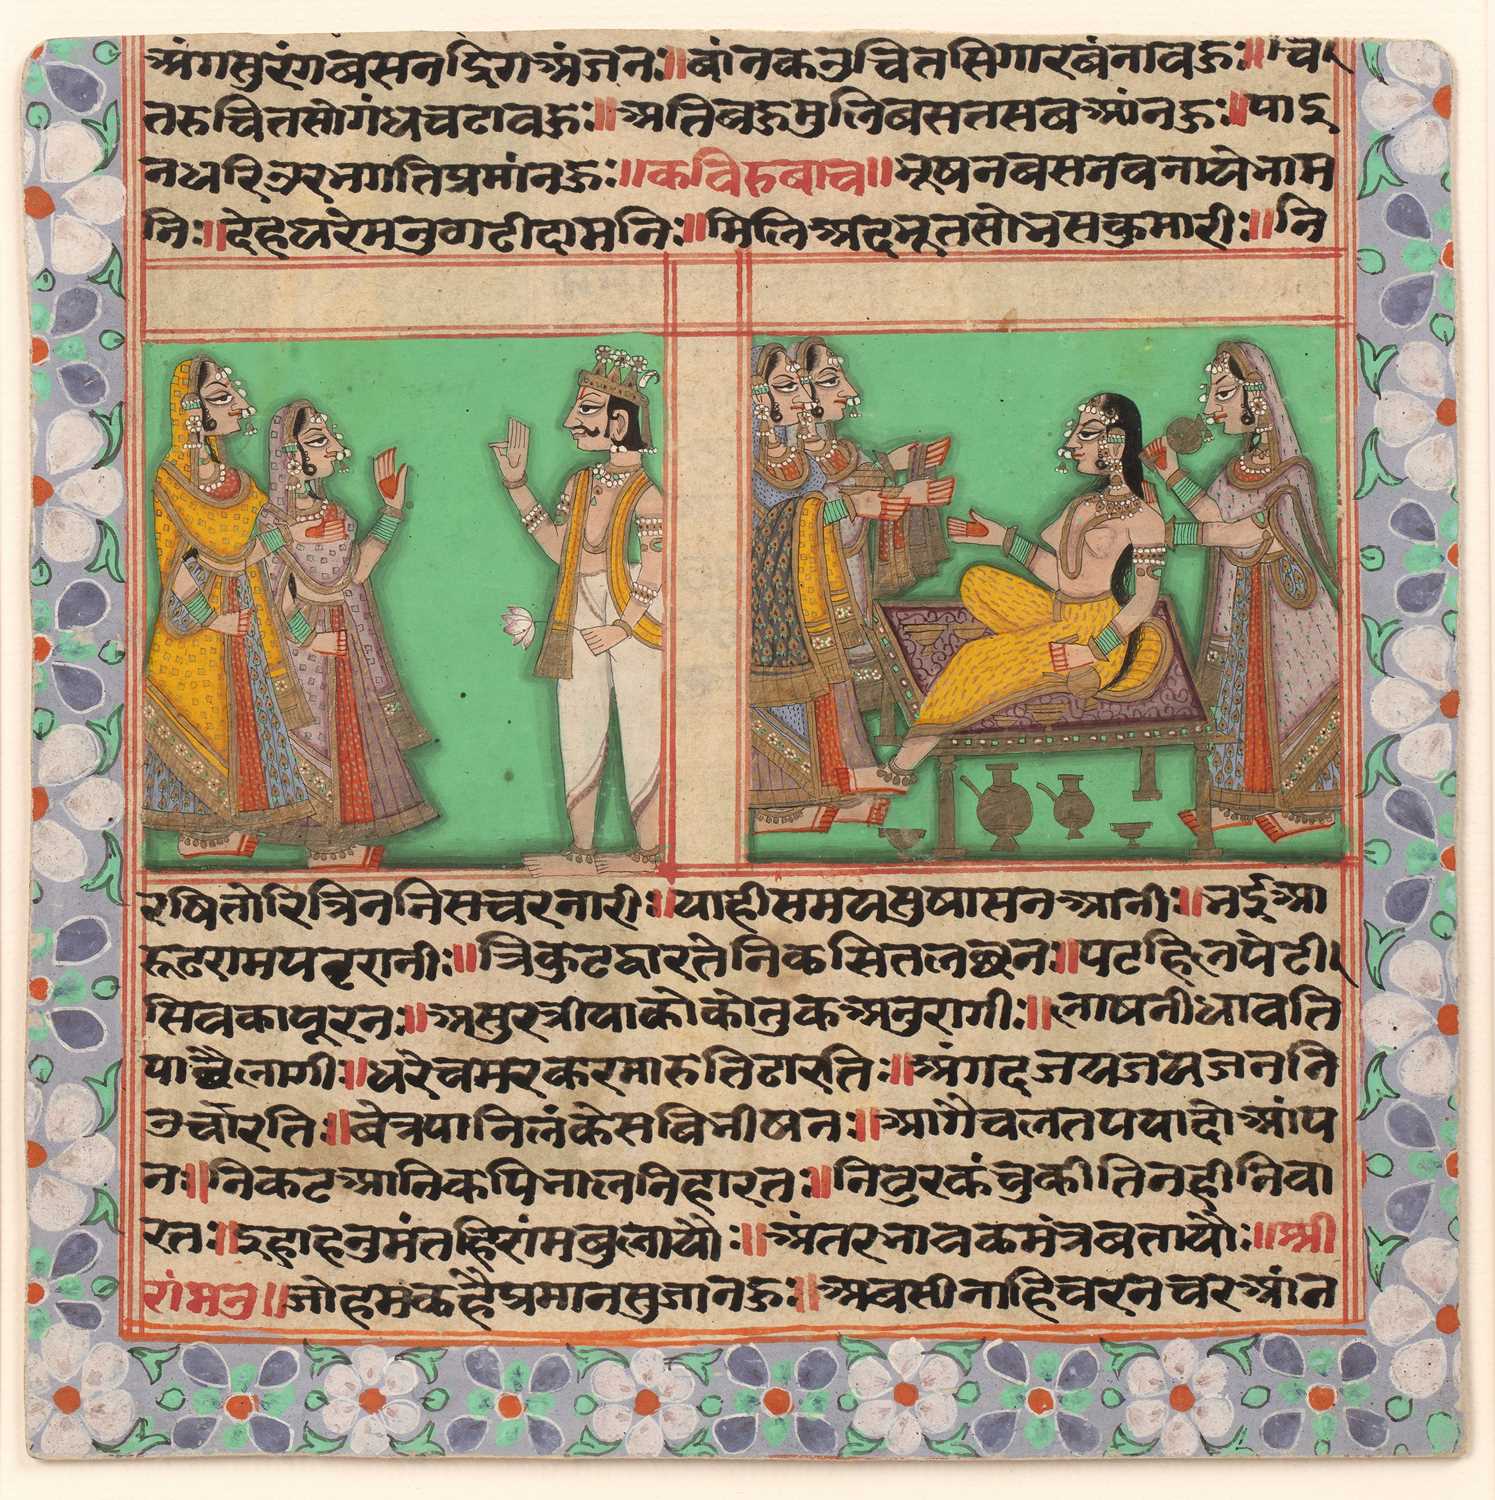 अंगसुरंगबसनद्रिगअंजनः॥बांनकनुचितसिगारबंनावऊः॥
तरुचितसोगंधचढावऊः॥अतिबऊमुलिबसतसबआंनऊः॥पाइ
नधरिनुरभगतिप्रमांनऊः॥कविरुबाच॥भूषनबसनबनायेभाम
निः॥देहधरेमनुगटीदामनिः॥मिलिअदभूतसोधसकुमारीः॥नि
रषितोरित्रिननिसचरनारीः॥याहीसमयसुषासनआनीः॥भईआ
रूढरामपटरानीः॥त्रिकुटद्वारतेनिकसिततछनः॥पटहिलपेटी
सिवकापूरनः॥असुरस्त्रीयाकोकोतुकअनुरागीः॥लाषनीधावति
लागीः॥धरेचमरकरमारुतिढारतिः॥अंगदजयजयजननि
उचारतिः॥बेत्रपानिलंकेसबिभीषनः॥आगैचलतपयादोआंप
नः॥निकटआनिकपिभालनिहारतः॥निठुरकंचुकीतिनहीनिवा
रतः॥इहाहनुमंतहिरांमबुलायौः॥अंतरभावकमंत्रबतायौः॥श्री
रांमनु॥जोहमकहैप्रमानसुजानऊः॥अवसीताहिचरनचरआंन